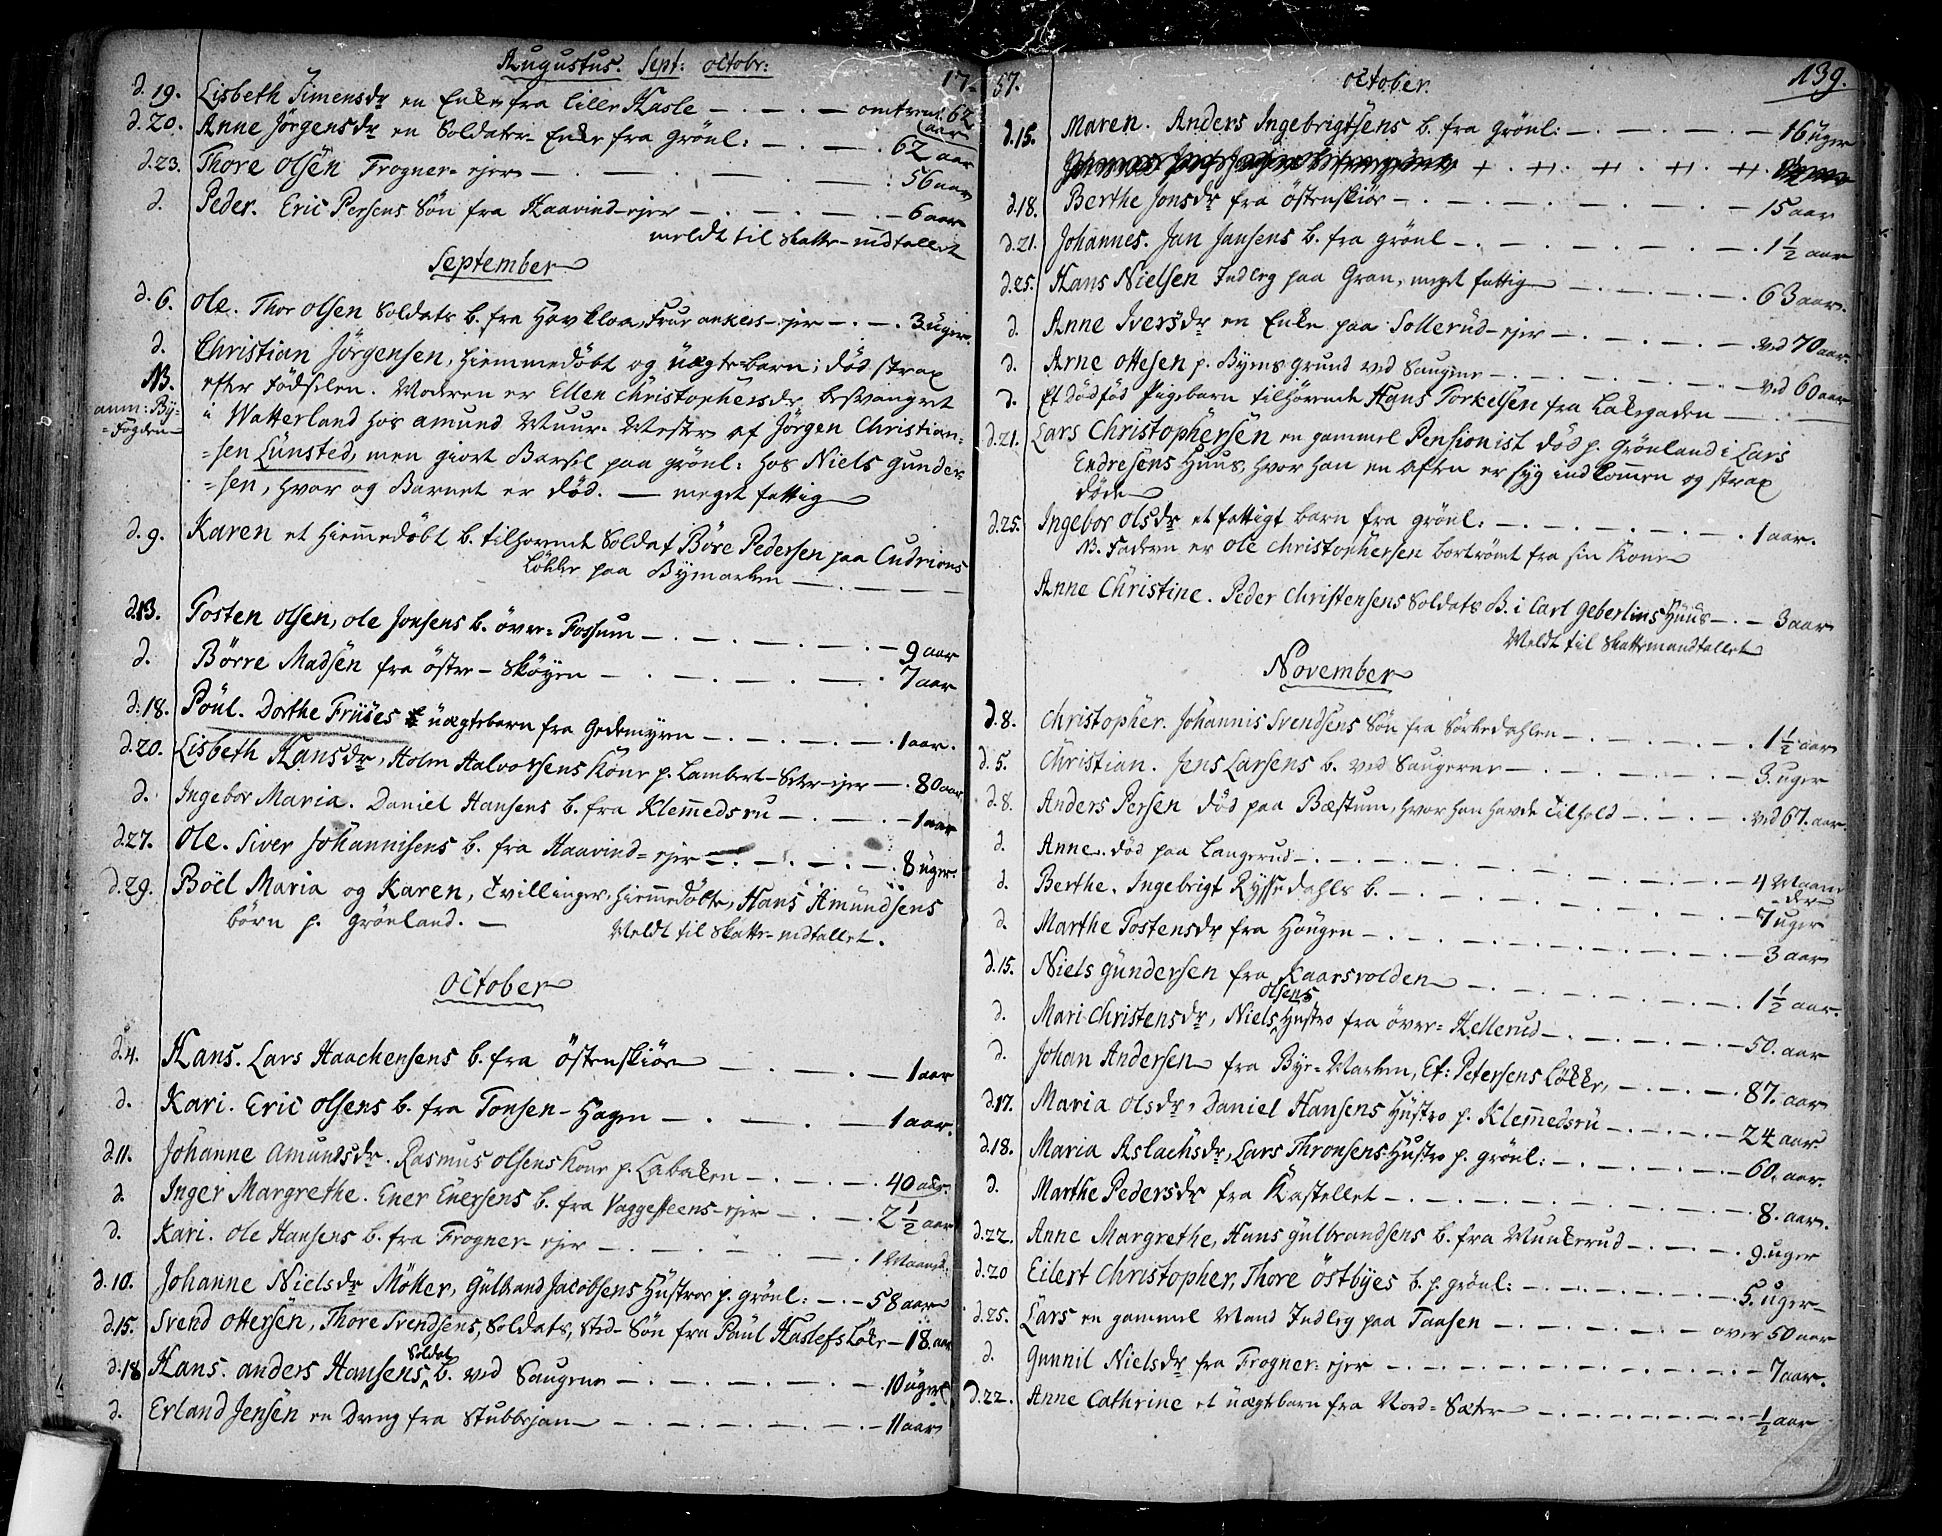 Augustus. Sept: octobr: 17
d. 19. Lisbeth Simensdr en Enke fra lille Hasle — omtrent 62 aar
d. 20. Anne Jörgensdr en Soldater-Enke fra Grönl: — 62 aar
d. 23. Thore Olsen Frogner-ejer — 56 aar
d. Peder. Eric Persens Søn fra Haavind-ejer — 6 aar
meldt til Skatte-mdtallet
September
d. 6. Ole. Thor Olsen Soldats b. fra Havkloa, Frue ankers-ejer — 3 uger.
d. Christian Jörgensen, hiemmedöbt og uægte-barn; død strax
NB. efter Födselen. Moderen er Ellen Christophersdr besvangret
anm: By- i Watterland hos Amund Muur-Mester af Jörgen Christian-
=Fogden =sen Lünsted, men giort Barsel paa Grönl: hos Niels Gunder-
=sen, hvor og Barnet er død. — meget fattig
d. 9. Karen et hiemedøbt b. tilhørende Soldat Böre Pedersen paa Cudrions
Løkke paa Bymarken —
d. 13. Tosten Olsen, Ole Jonsens b. över-Fossum — 9 aar
d. Börre Madsen fra östre-Sköyen — 7 aar
d. 18. Poul. Dorthe Friises uægtebarn fra Gedemyren — 1 aar.
d. 20. Lisbeth Hansdr, Holm Halvorsens Kone p. Lambert-Seter-ejer — 80 aar
d. Ingebor Maria. Daniel Hansens b. fra Klemmedsru — 1 aar
d. 27. Ole. Siver Johannisens b. fra Haavind-ejer — 8 uger.
d. 29. Böel Maria og Karen, Tvillinger, hiemedöbte, Hans Amundsens
börn p. Grönland. — Meldt til Skatte-mdtallet.
October
d. 4. Hans. Lars Haachensens b. fra Östenskiör — 1 aar
d. Kari. Eric Olsens b. fra Tonsen-Hagen — 1 aar.
d. 11. Johanne Amundsdr. Rasmus Olsens Kone p. Labaken — 40 aar.
d. Inger Margrethe. Ener Enersens b. fra Vaggesteens-ejer — 2 ½ aar
d. Kari. Ole Hansens b. fra Frogner-ejer — 1 Maaned.
d. 10. Johanne Nielsdr Möller, Gulbrand Jacobsens Hustroe p. Grönl: — 58 aar
d. 15. Svend Ottersen, Thore Svendsens, Soldats, Sted-Søn fra Paul Haslefs Løkke — 18. aar
d. 18 Hans. Anders Hansens Soldat b. ved Saugene — 10 uger
d. Erland Jensen en Dreng fra Stubbejan — 11 aar
57. October. 139.
d. 15. Maren. Anders Ingebrigtsens b. fra Grönl: — 16 uger
d. 18. Berthe Jonsdr fra Östenskiör — 15 aar
d. 21. Johannes. Jan Jansens b. fra Grönl — 1 ½ aar
d. 25. Hans Nielsen Inderg paa Gran, meget fattig — 63 aar.
d. Anne Iversdr en Enke paa Sollerud-ejer — ved 70 aar.
d. Arne Ottesen p. Byens grund ved Saugene — ved 60 aar
d. Et dödföd Pigebarn tilhörende Hans Torkelsen fra Laksgaden —
d. 21. Lars Christophersen en gammel Pensionist död p. Grönland i Lars
Endresens Huus, hvor han en aften er syg indkommen og strax
döde
d. 25. Ingebor Olsdr et fattigt barn fra Grönl: — 1 aar.
NB. Faderen er Ole Christophersen bortrömt fra sin Kone
Anne Christine. Peder Christensens Soldats B. i Carl Geberlins Huus — 3 aar
Meldt til Skattemandtallet
November
d. 8. Christopher. Johannis Svendsens Søn fra Sörkedahlen — 1 ½ aar
d. 5. Christian. Jens Larsens b. ved Saugerne — 3. uger
d. 8. Anders Persen död paa Bæstum, hvor han havde Tilhold — ved 67. aar.
d. Anne. död paa Langerud — 4 Maane
-der
d. Berthe. Ingebrigt Ryssedahls b. — 7 uger
d. Marthe Tostensdr fra Höugen — 3 aar
d. 15. Niels Gundersen fra Kaarsvolden — 1 ½ aar.
d. Mari Christensdr, Niels Olsens Hustro fra över-Hellerud — 50. aar
d. Johan Andersen fra Bye-Marken, Et: Petersens Løkke, — 87. aar
d. 17. Maria Olsdr, Daniel Hansens Hustro p. Klemmedsrü — 24 aar
d. 18. Maria Aslachsdr, Lars Thronsens Hustro p. Grönl: — 60. aar.
d. Marthe Pedersdr fra Kastellet — 8. aar.
d. 22. Anne Margrethe, Hans Gulbrandsens b. fra Munkerud — 9. uger
d. 20 Eilert Christopher, Thore Östbyes b. p. Grönl: — 5. uger
d. 25. Lars en gammel Mand Inderg paa Taasen — over 50 aar
d. Gunnil Nielsdr fra Frogner-ejer — 7 aar.
d. 22. Anne Cathrine et uægtebarn fra Nord-Sæter — ½ aar